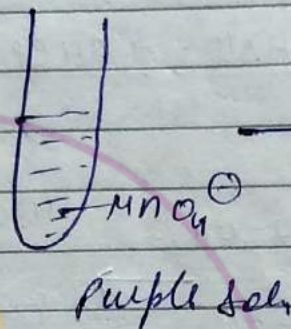 MnO₄⊖
Purple Soln